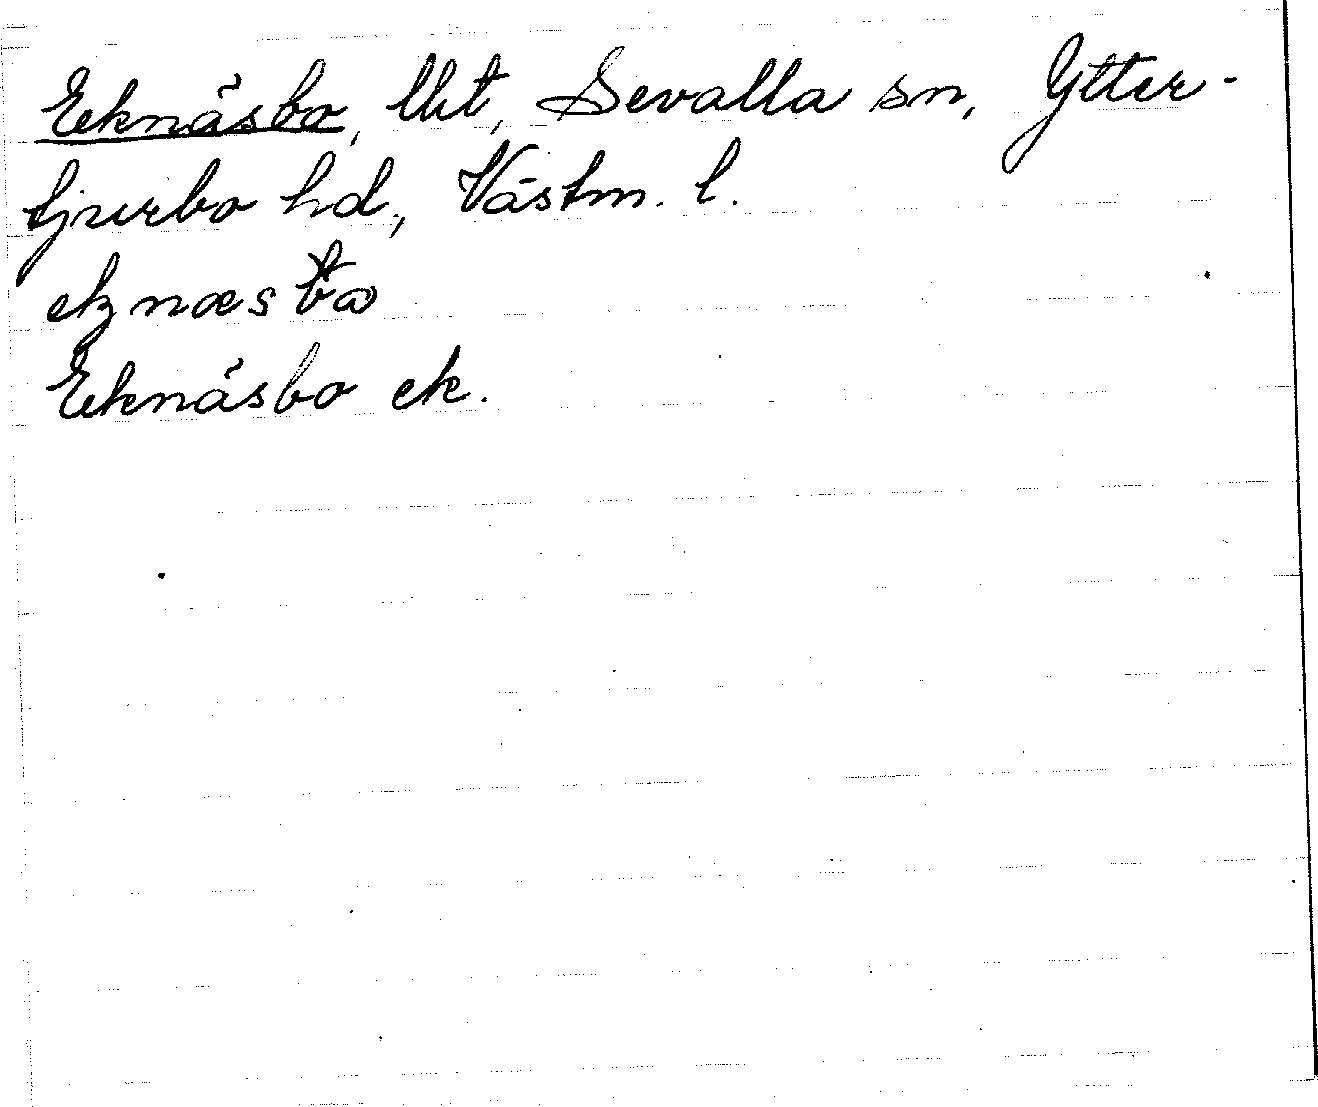 Eknäsbo, lht, Sevalla sn, Ytter-
tjurbo hd, Västm. l.
Eknäsbo ek.